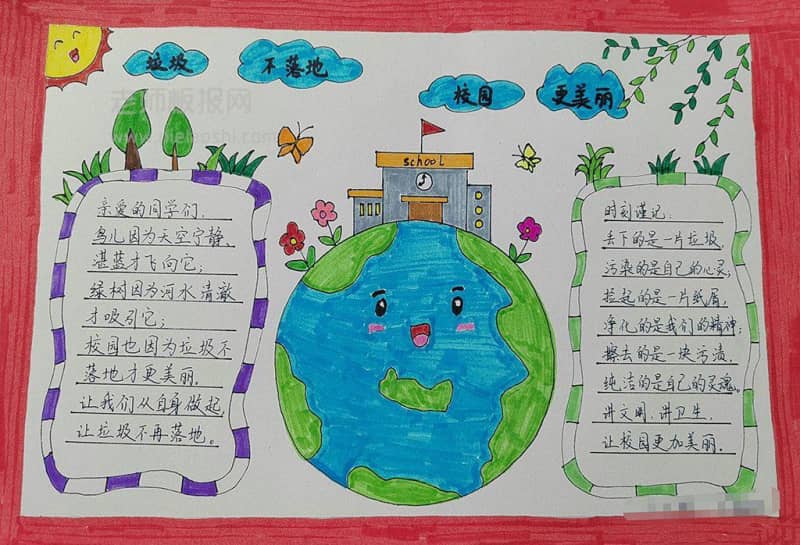 垃圾
不落地
校园
更美丽
老师板报网
school
亲爱的同学们,
鸟儿因为天空宁静、
湛蓝才飞向它;
绿树因为河水清澈
才吸引它;
校园也因为垃圾不
落地才更美丽。
让我们从自身做起,
让垃圾不再落地。
时刻谨记:
丢下的是一片垃圾,
污染的是自己的心灵;
捡起的是一片纸屑,
净化的是我们的精神;
擦去的是一块污渍,
纯洁的是自己的灵魂。
讲文明,讲卫生,
让校园更加美丽。